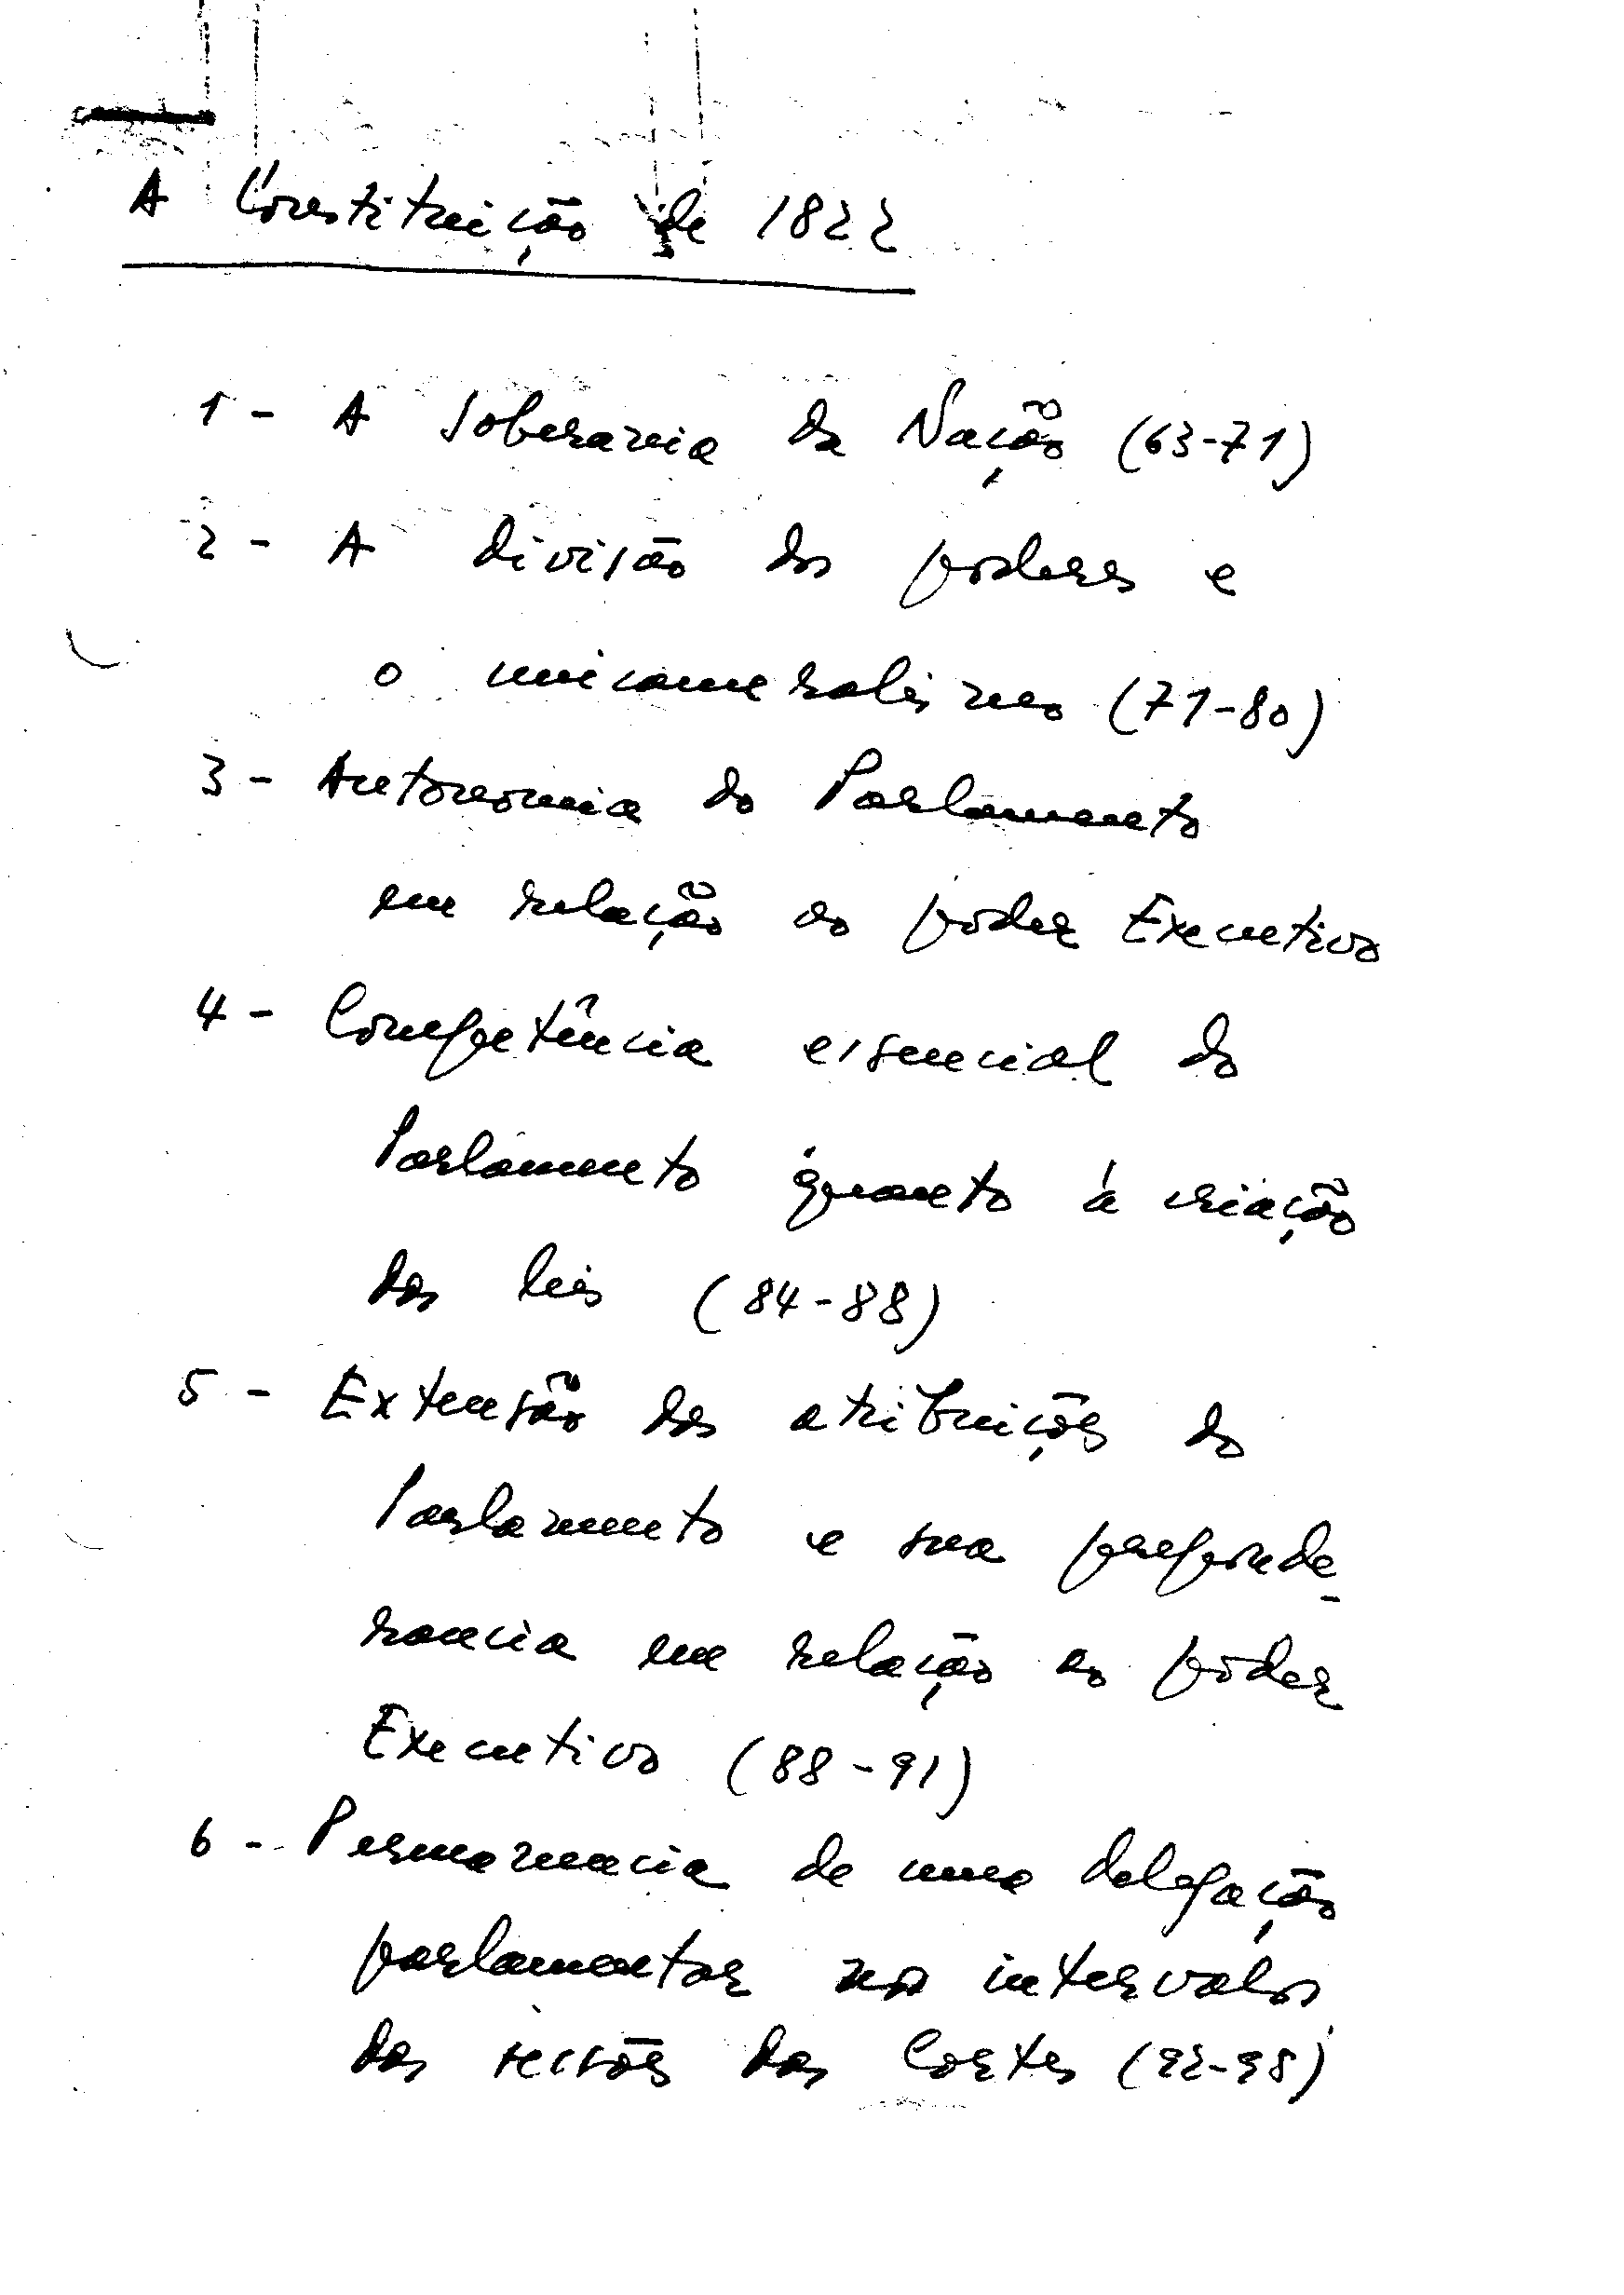 A Constituição de 1822
1 - A Soberania da Nação (63-71)
2 - A divisão dos poderes e
o unicameralismo (71-80)
3 - Autonomia do Parlamento
em relação ao poder Executivo
4 - Competência essencial do
Parlamento quanto à criação
das leis (84-88)
5 - Extensão das atribuições do
Parlamento e sua preponde-
rancia em relação ao poder
Executivo (88-91)
6 - Permanencia de uma delegação
parlamentar nos intervalos
das sessões das Cortes (92-98)